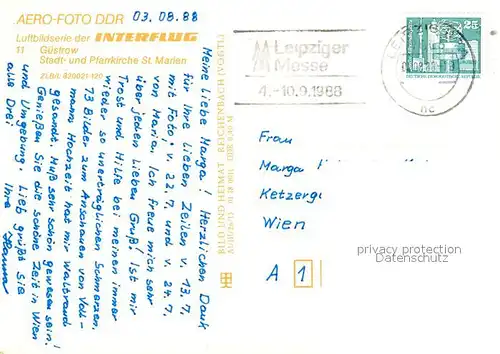 AERO-FOTO DDR
03.08.88
Luftbildserie der INTERFLUG
11 Güstrow
Stadt- und Pfarrkirche St. Marien
ZLB/L 820021-120
Meine liebe Marga! Herzlichen Dank
für Ihre lieben Zeilen v. 13.7.
mit Foto, v. 22.7. und v. 24.7.
von Maria. Ich freue mich sehr
über jeden lieben Gruß! Ist mir
Trost und Hilfe bei meinen immer
wieder so unerträglichen Schmerzen.
73 Bilder zum Anschauen von Voll-
manns Hochzeit hat mir Waltraud
gesandt. Muß sehr schön gewesen sein!
Genießen Sie die schöne Zeit in Wien
und Umgebung. Lieb grüßt Sie
alle Drei Ihre
BILD UND HEIMAT REICHENBACH (VOGTL)
Leipziger
Messe
4.-10.9.1988
25
DEUTSCHE DEMOKRATISCHE REPUBLIK
Frau
Marga
Ketzerg
Wien
A 1
privacy protection
Datenschutz